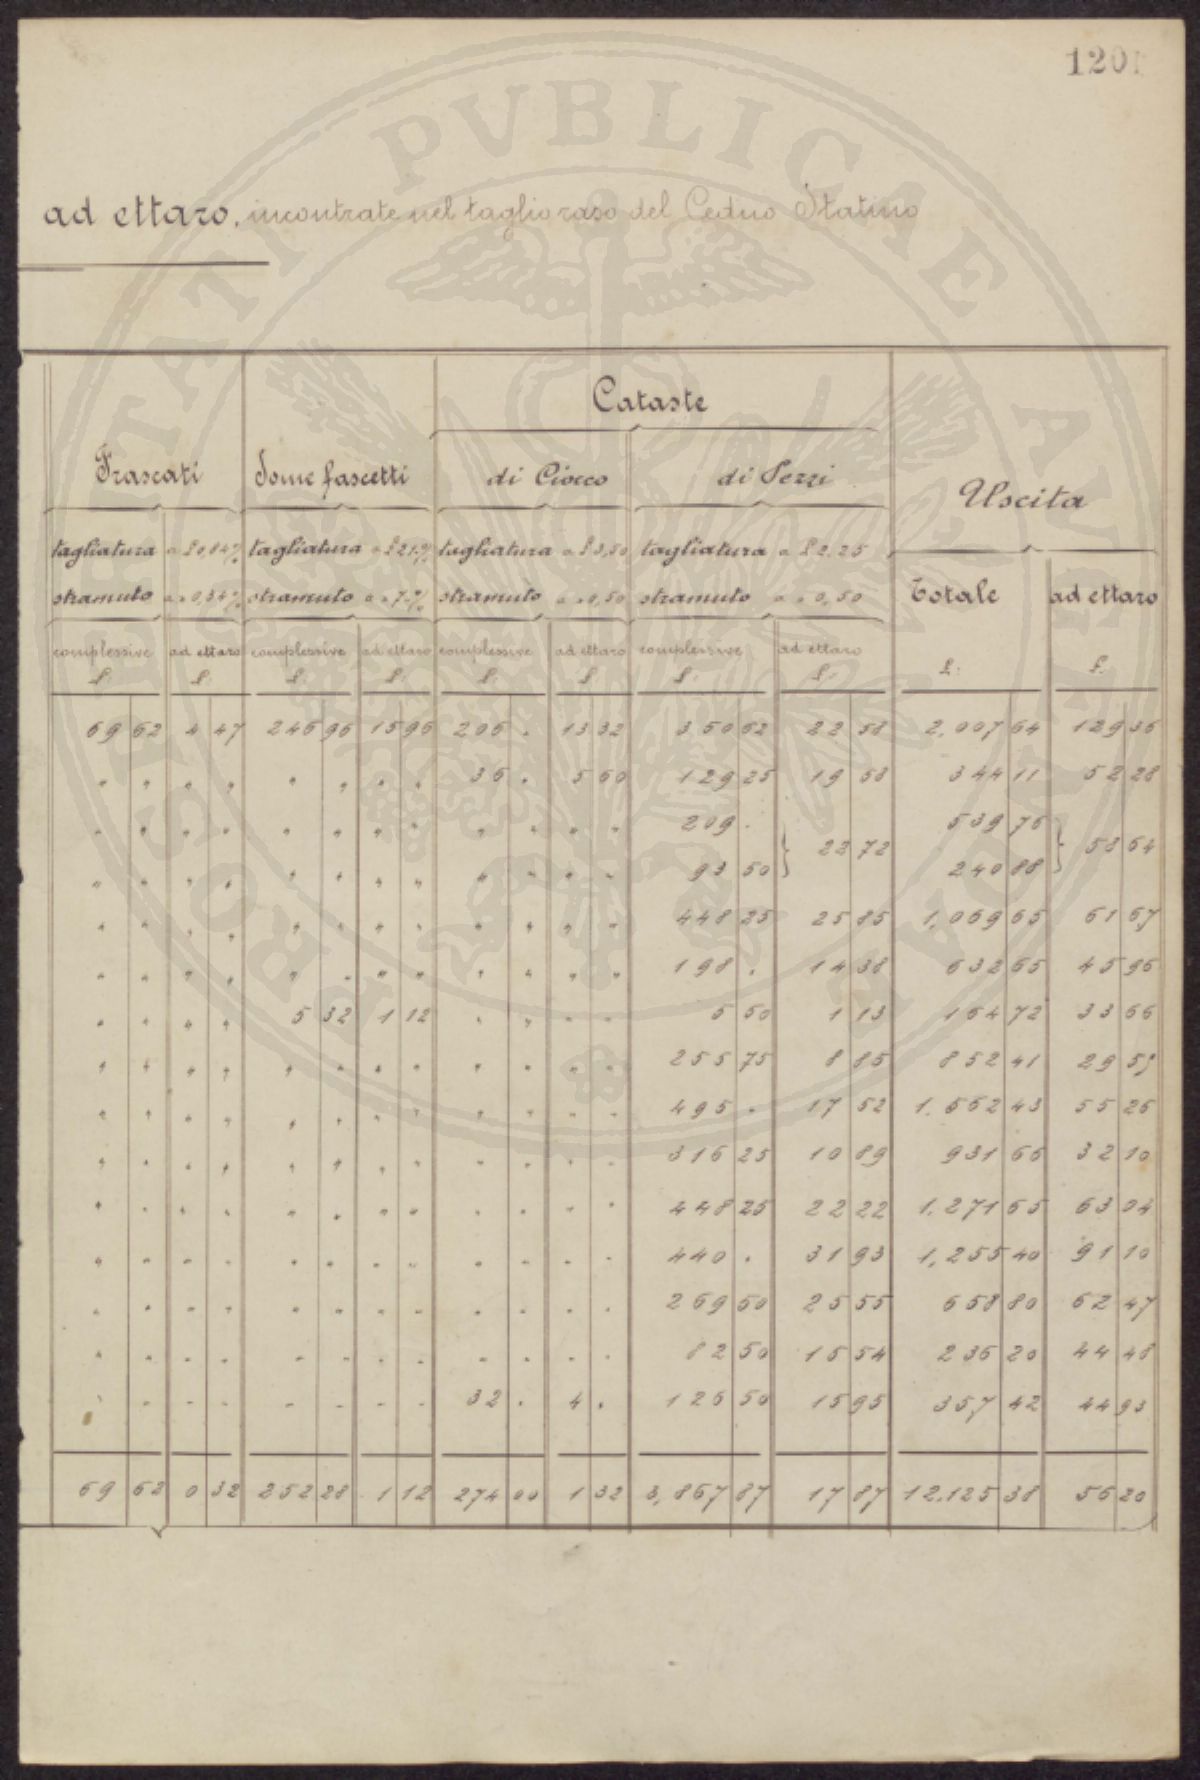 1201
PROSPERITATI PVBLICAE AVGENDAE
ad ettaro, incontrate nel taglio raso del Ceduo Statino
Cataste
Frascati Some fascetti di Ciocco di Pezzi Uscita
tagliatura a £ 0,84 % tagliatura a £ 21 % tagliatura a £ 3,50 tagliatura a £ 2.25
stramuto a " 0,34 % stramuto a " 7 % stramuto a " 0,50 stramuto a " 0,50 Totale ad ettaro
complessive ad ettaro complessive ad ettaro complessive ad ettaro complessive ad ettaro
£. £. £. £. £. £ £. £. £. £.
69 62 4 47 246 96 15 96 206 . 13 32 350 62 22 58 2,007 64 129 36
" " " " " " " " 36 . 5 60 129 25 19 53 344 11 52 28
" " " " " " " " " " " " 209 . 539 76
} 22 72 } 53 64
" " " " " " " " " " " " 93 50 240 88
" " " " " " " " " " " " 448 25 25 85 1,069 65 61 67
" " " " " " " " " " " " 198 . 14 38 632 65 45 96
" " " " 5 32 1 12 " " " " 5 50 1 13 164 72 33 66
" " " " " " " " " " " " 255 75 8 85 852 41 29 51
" " " " " " " " " " " " 495 . 17 52 1.562 43 55 26
" " " " " " " " " " " " 316 25 10 89 931 66 32 10
" " " " " " " " " " " " 448 25 22 22 1.271 65 63 04
" " " " " " " " " " " " 440 . 31 93 1,255 40 91 10
" " " " " " " " " " " " 269 50 25 55 658 80 62 47
" " " " " " " " " " " " 82 50 15 54 236 20 44 48
" " " " " " " " 32 . 4 . 126 50 15 95 357 42 44 93
69 62 0 32 252 28 1 12 274 00 1 32 3,867 87 17 87 12.125 38 56 20